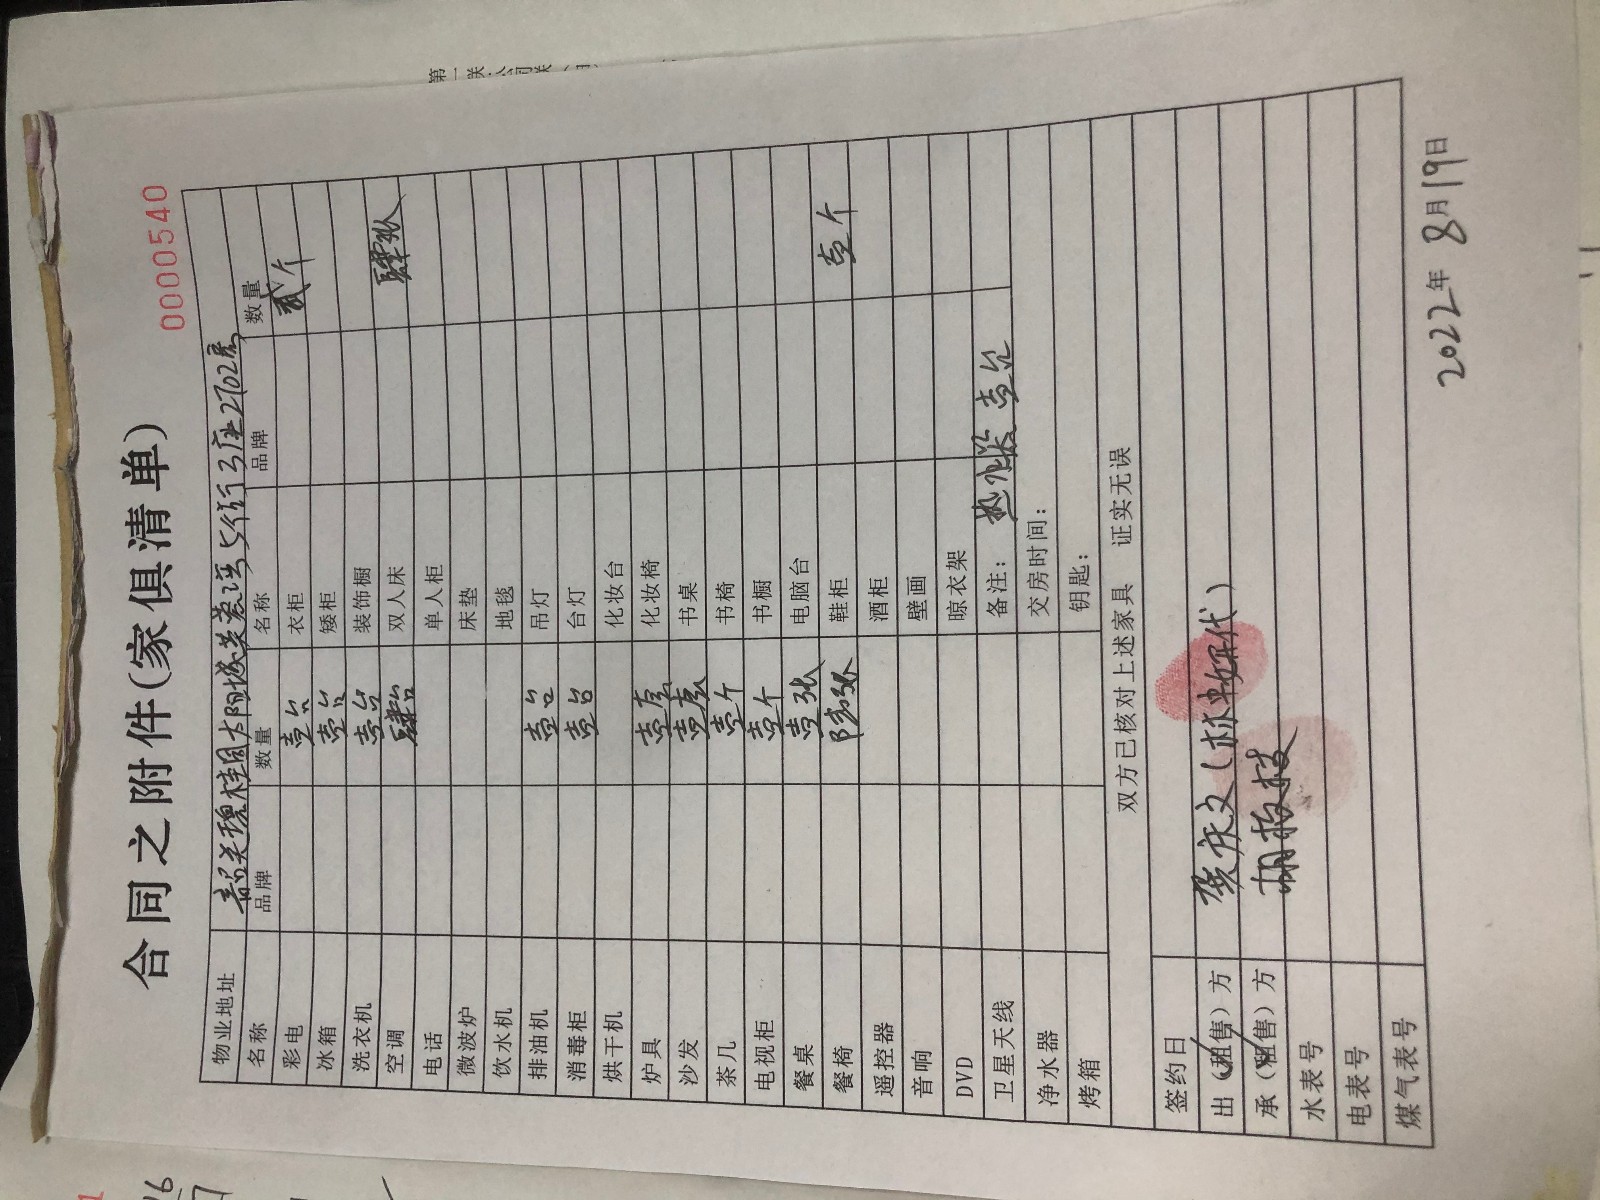 合同之附件(家俱清单)
0000540
物业地址 韶关碧桂园太阳城芙蓉湾七街行3座2702房
名称 品牌 数量 名称 品牌 数量
彩电 壹台 衣柜 贰个
冰箱 壹台 矮柜
洗衣机 壹台 装饰橱
空调 肆台 双人床 肆张
电话 单人柜
微波炉 床垫
饮水机 地毯
排油机 壹台 吊灯
消毒柜 壹台 台灯
烘干机 化妆台
炉具 壹套 化妆椅
沙发 壹套 书桌
茶几 壹个 书椅
电视柜 壹个 书橱
餐桌 壹张 电脑台
餐椅 鞋柜 壹个
遥控器 酒柜
音响 壁画
DVD 晾衣架
卫星天线 备注: 热水器 壹台
净水器 交房时间:
烤箱 钥匙:
双方已核对上述家具 证实无误
签约日
出(租售)方
承(租售)方
水表号
电表号
煤气表号
2022年8月19日